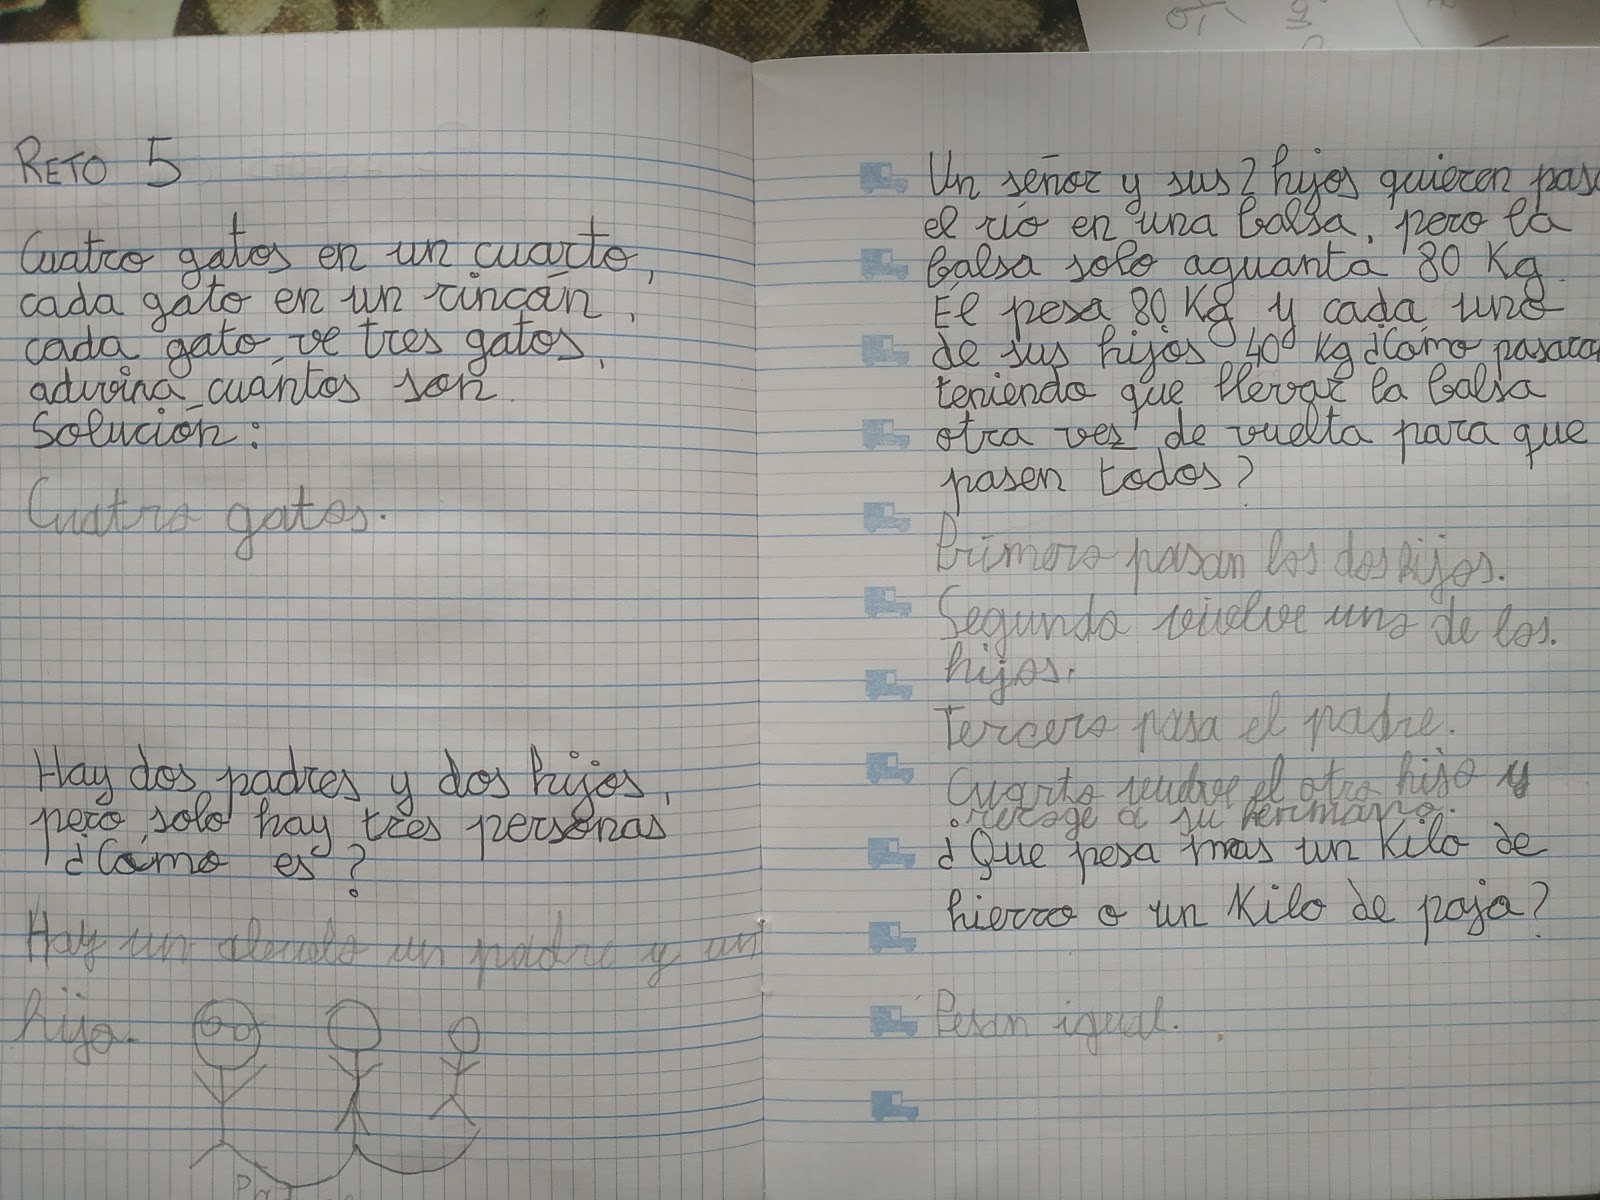 RETO 5
Cuatro gatos en un cuarto,
cada gato en un rincón,
cada gato ve tres gatos,
adivina cuántos son.
Solución:
Cuatro gatos.
Hay dos padres y dos hijos,
pero solo hay tres personas
¿Cómo es?
Hay un abuelo un padre y un
hijo.
Un señor y sus 2 hijos quieren pasa
el río en una balsa, pero la
balsa solo aguanta 80 Kg.
Él pesa 80 Kg y cada uno
de sus hijos 40 Kg ¿Cómo pasara
teniendo que llevar la balsa
otra vez de vuelta para que
pasen todos?
Primero pasan los dos hijos.
Segundo vuelve uno de los.
hijos.
Tercero pasa el padre.
Cuarto vuelve el otro hijo y
recoge a su hermano.
¿Que pesa mas un Kilo de
hierro o un Kilo de paja?
Pesan igual.